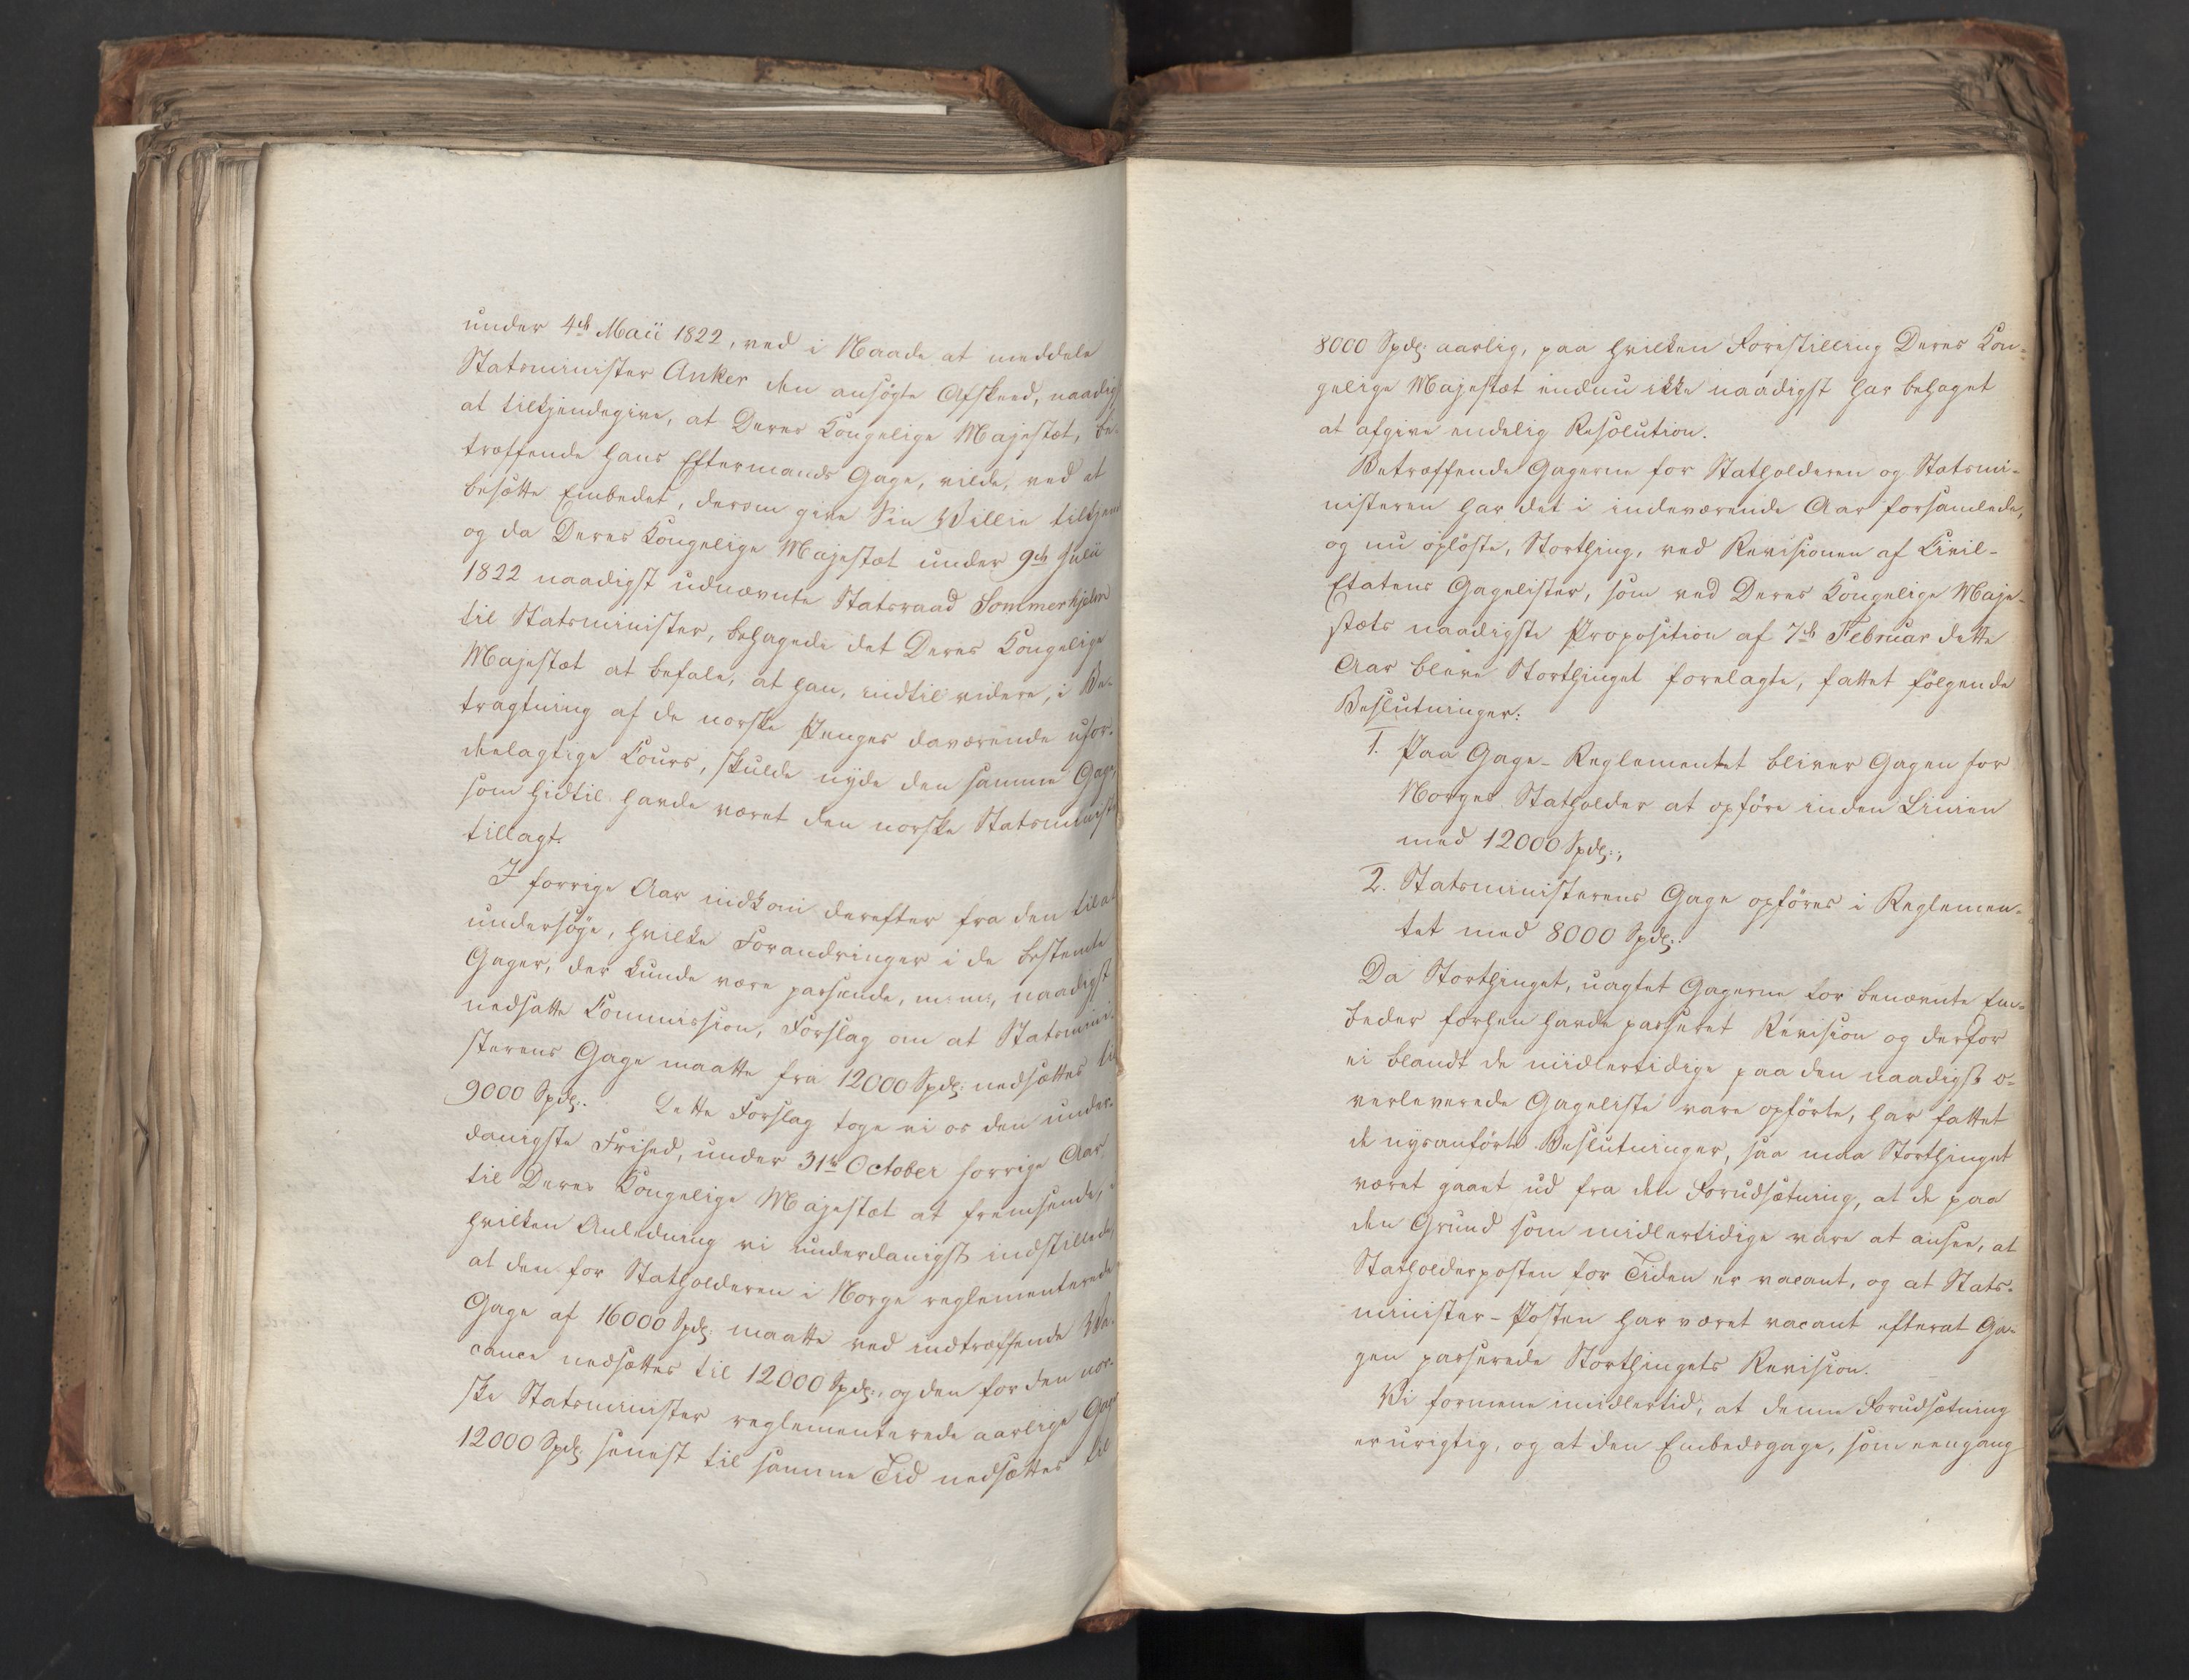 under 4de Maii 1822, ved i Naade at meddele
Statsminister Anker den ansögte Afskeed, naadigst
at tilkjendegive, at Deres Kongelige Majestæt, be-
træffende hans Eftermands Gage, vilde, ved at
besætte Embedet, derom give Sin Villie tilkjende
og da Deres Kongelige Majestæt under 9de Julii
1822 naadigst udnævnte Statsraad Sommerhjelm
til Statsminister, behagede det Deres Kongelige
Majestæt at befale, at han, indtil videre, i Be-
tragtning af de norske Penges daværende ufor-
deelagtige Cours, skulde nyde den samme Gage,
som hidtil havde været den norske Statsminister
tillagt.
I forrige Aar indkom derefter fra den til at
undersöge, hvilke Forandringer i de bestemte
Gager, der kunde være passende, m: m:, naadigst
nedsatte Commission, Forslag om at Statsmini-
sterens Gage maatte fra 12000 Spdlr: nedsættes til
9000 Spdlr:. Dette Forslag toge vi os den under-
danigste Frihed, under 31te October forrige Aar,
til Deres Kongelige Majestæt at fremsende, i
hvilken Anledning vi underdanigst indstillede,
at den for Statholderen i Norge reglementerede
Gage af 16000 Spdlr: maatte ved indtræffende Va-
cance nedsættes til 12000 Spdlr:, og den for den nor-
ske Statsminister reglementerede aarlige Gage
12000 Spdlr: senest til samme Tid nedsættes til
8000 Spdlr: aarlig, paa hvilken Forestilling Deres Kon-
gelige Majestæt endnu ikke naadigst har behaget
at afgive endelig Resolution.
Betræffende Gagerne for Statholderen og Statsmi-
nisteren har det i indeværende Aar forsamlede,
og nu oplöste, Storthing, ved Revisionen af Civil-
Etatens Gagelister, som ved Deres Kongelige Maje-
stæts naadigste Proposition af 7de Februar dette
Aar bleve Storthinget forelagte, fattet fölgende
Beslutninger:
1. Paa Gage-Reglementet bliver Gagen for
Norges Statholder at opföre inden Linien
med 12000 Spdlr:,
2. Statsministerens Gage opföres i Reglemen-
tet med 8000 Spdlr:.
Da Storthinget, uagtet Gagerne for benævnte Em-
beder forhen havde passeret Revision og derfor
ei blandt de midlertidige paa den naadigst o-
verleverede Gageliste vare opförte, har fattet
de nysanförte Beslutninger, saa maa Storthinget
været gaaet ud fra den Forudsætning, at de paa
den Grund som midlertidige vare at ansee, at
Statholderposten for Tiden er vacant, og at Stats-
minister-Posten har været vacant efterat Ga-
gen passerede Storthingets Revision.
Vi formene imidlertid, at denne Forudsætning
er urigtig, og at den Embedsgage, som eengang